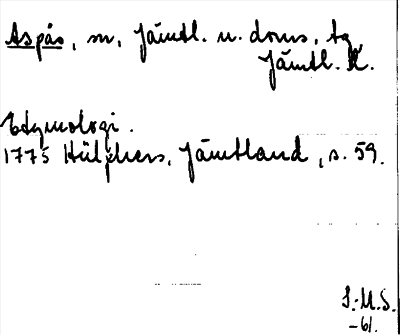 Aspås, sn, Jämtl. n. doms, tg,
Jämtl. l.
Etymologi.
1775 Hülphers, Jämtland, s. 59.
S:M.S.
-61.